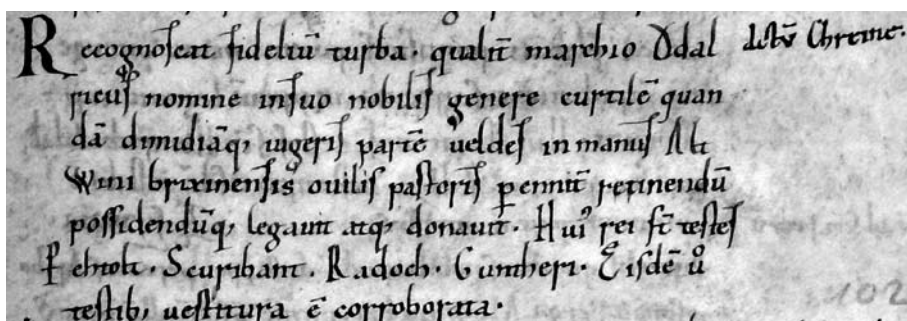 Recognoscat fideliũ turba · qualit̃ marchio Ődal
ricus nomine in suo nobilis genere curtilẽ quan
dã dimidiãq; iugeris partẽ ueldes in manus Alt
Wini brixinensis ouilis pastoris ꝑennit̃ retinendũ
possidendũq; legauit atq; donauit · Hui᷒ rei st̃ testes
Perhtolt · Scuribant · Radoch · Guntheri · Eisdẽ uͦ
testib; uestitura ẽ corroborata ·
102